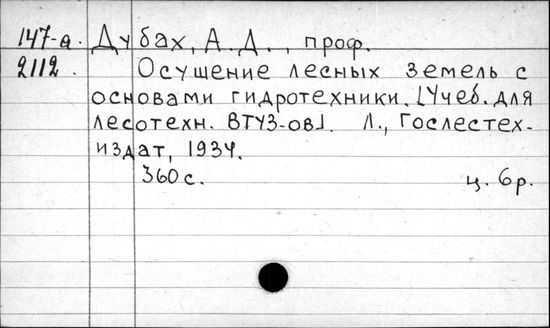 147-а. Дубах, А. Д., проф.
2112. Осушение лесных земель с
основами гидротехники. [Учеб. для
лесотехн. ВТУЗ-ов]. Л., Гослестех-
издат, 1934.
360 с. ц. 6 р.